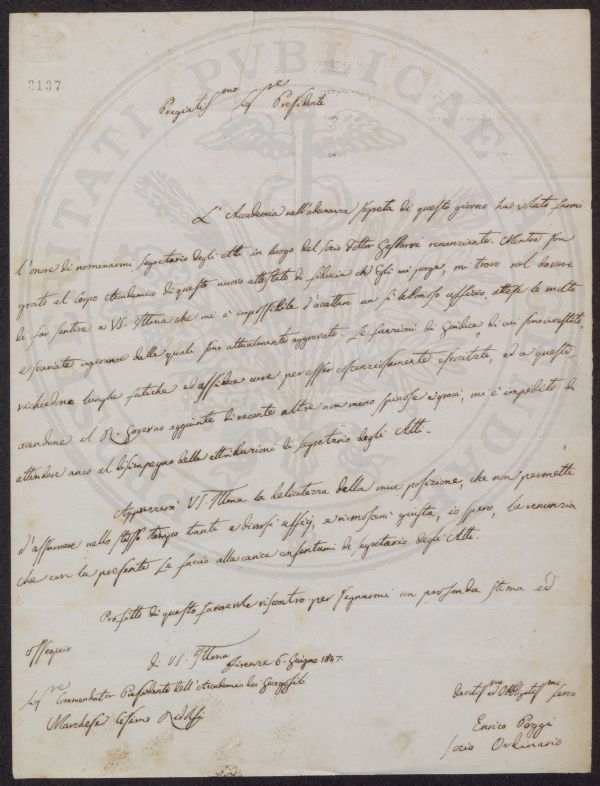 3137
Pregiatiss.mo Sig.re Presidente
L'Accademia nell'adunanza segreta di questo giorno ha voluto farmi
l'onore di nominarmi Segretario degli Atti in luogo del Socio Dottor renunziante. Mentre son
grato al Corpo Accademico di questo nuovo attestato di fiducia ch'Egli mi porge, mi trovo nel dovere
di far sentire a VS. Illma che mi è impossibile d'accettare un sì laborioso ufficio, attese le molte
e svariate ingerenze dalle quali sono attualmente aggravato. Le funzioni di Giudice di cui sono investito,
richiedono lunghe fatiche ed assidue cure per esser coscienziosamente esercitate, ed a queste
avendone il R. Governo aggiunte di recente altre non meno spinose e gravi, mi è impedito di
attendere anco al disimpegno delle attribuzioni di Segretario degli Atti.
Apprezzerà VS. Illma la delicatezza della mia posizione, che non permette
d'assumere nello stesso tempo tanti e diversi uffizj, e riconoscerà giusta, io spero, la renunzia
che con la presente Le faccio alla carica di Segretario degli Atti.
Profitto di questo favorevole riscontro per segnarmi con profonda stima ed
ossequio
di VS. Illma
Firenze 6. Giugno 1847.
Sig.re Commendator Presidente dell'Accademia dei Georgofili
Marchese Cosimo Ridolfi
devotiss.mo ed Obbligatiss.mo Servo
Enrico Poggi
Socio Ordinario